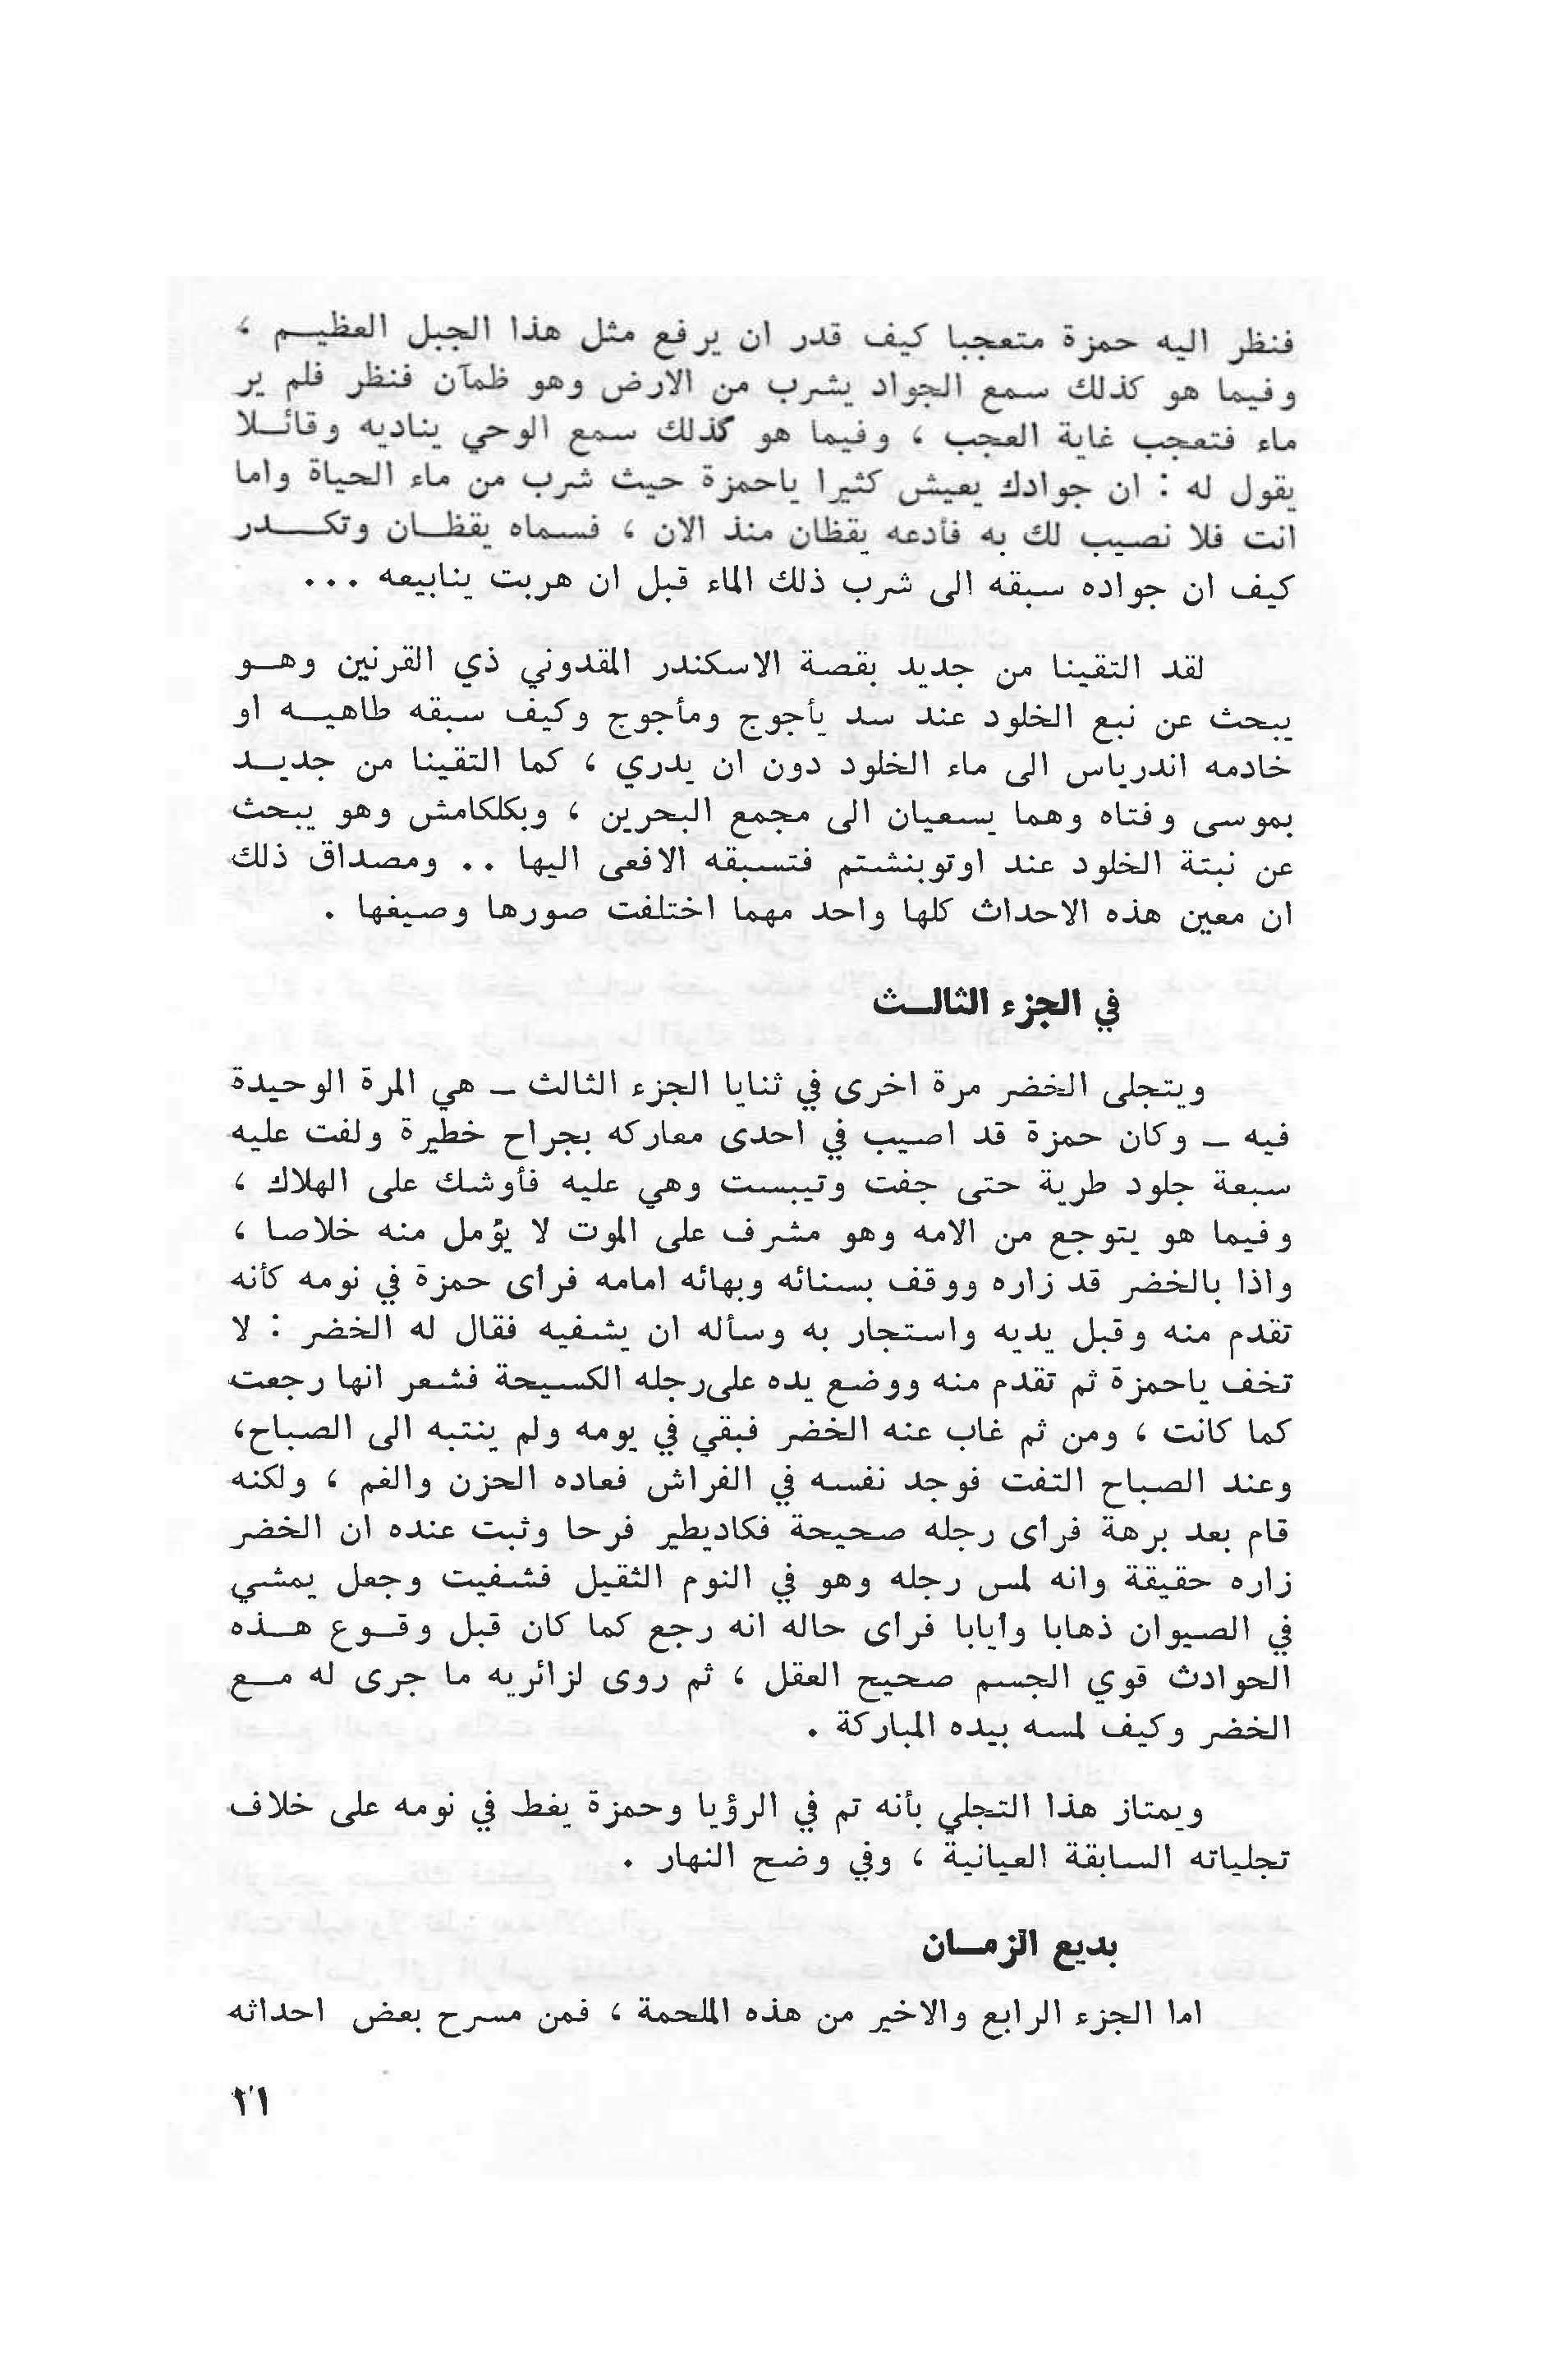 فنظر اليه حمزة متعجبا كيف قدر ان يرفع مثل هذا الجبل العظيم ،
وفيما هو كذلك سمع الجواد يشرب من الارض وهو ظمآن فنظر فلم ير
ماء فتعجب غاية العجب ، وفيما هو كذلك سمع الوحي يناديه وقائلا
يقول له : ان جوادك يعيش كثيرا ياحمزة حيث شرب من ماء الحياة واما
انت فلا نصيب لك به فأدعه يقظان منذ الان ، فسماه يقظان وتكدر
كيف ان جواده سبقه الى شرب ذلك الماء قبل ان هربت ينابيعه ...
لقد التقينا من جديد بقصة الاسكندر المقدوني ذي القرنين وهو
يبحث عن نبع الخلود عند سد يأجوج ومأجوج وكيف سبقه طاهيه او
خادمه اندرياس الى ماء الخلود دون ان يدري ، كما التقينا من جديد
بموسى وفتاه وهما يسعيان الى مجمع البحرين ، وبكلكامش وهو يبحث
عن نبتة الخلود عند اوتوبنشتم فتسبقه الافعى اليها .. ومصداق ذلك
ان معين هذه الاحداث كلها واحد مهما اختلفت صورها وصيغها .
في الجزء الثالث
ويتجلى الخضر مرة اخرى في ثنايا الجزء الثالث ــ هي المرة الوحيدة
فيه ــ وكان حمزة قد اصيب في احدى معاركه بجراح خطيرة ولفت عليه
سبعة جلود طرية حتى جفت وتيبست وهي عليه فأوشك على الهلاك ،
وفيما هو يتوجع من الامه وهو مشرف على الموت لا يؤمل منه خلاصا ،
واذا بالخضر قد زاره ووقف بسنائه وبهائه امامه فرأى حمزة في نومه كأنه
تقدم منه وقبل يديه واستجار به وسأله ان يشفيه فقال له الخضر : لا
تخف ياحمزة ثم تقدم منه ووضع يده على رجله الكسيحة فشعر انها رجعت
كما كانت ، ومن ثم غاب عنه الخضر فبقي في يومه ولم ينتبه الى الصباح،
وعند الصباح التفت فوجد نفسه في الفراش فعاده الحزن والغم ، ولكنه
قام بعد برهة فرأى رجله صحيحة فكاديطير فرحا وثبت عنده ان الخضر
زاره حقيقة وانه لمس رجله وهو في النوم الثقيل فشفيت وجعل يمشي
في الصيوان ذهابا وأيابا فرأى حاله انه رجع كما كان قبل وقوع هذه
الحوادث قوي الجسم صحيح العقل ، ثم روى لزائريه ما جرى له مع
الخضر وكيف لمسه بيده المباركة .
ويمتاز هذا التجلي بأنه تم في الرؤيا وحمزة يغط في نومه على خلاف
تجلياته السابقة العيانية ، وفي وضح النهار .
بديع الزمان
اما الجزء الرابع والاخير من هذه الملحمة ، فمن مسرح بعض احداثه